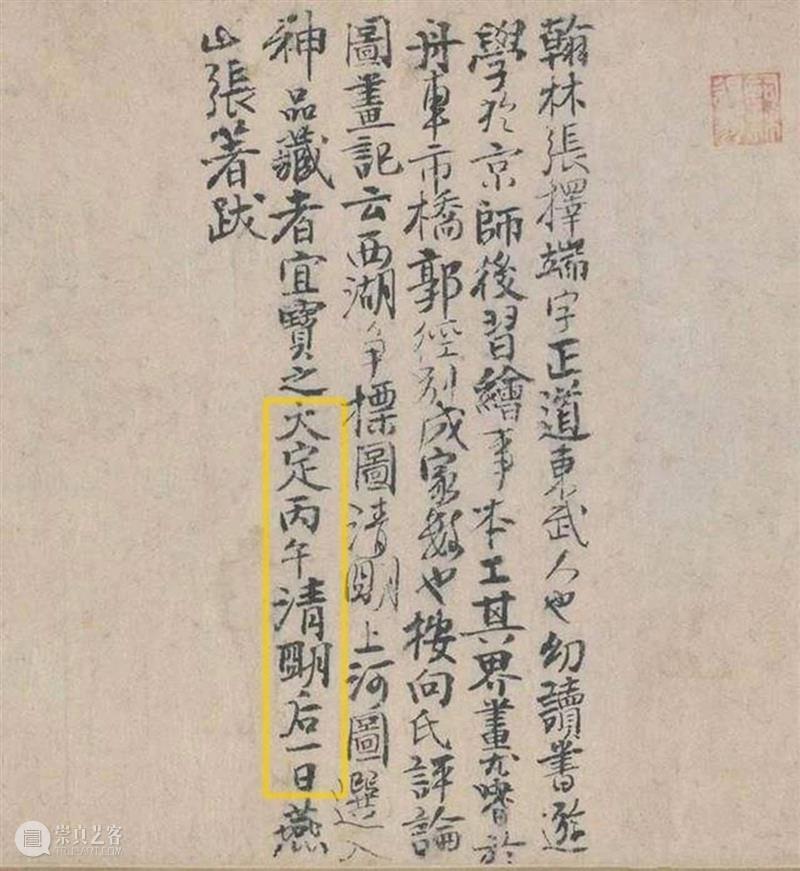 翰林張擇端字正道東武人也幼讀書遊
學於京師後習繪事本工其界畫尤嗜於
舟車市橋郭徑別成家數也按向氏評論
圖畫記云西湖爭標圖清明上河圖選入
神品藏者宜寶之大定丙午清明后一日燕
山張著跋
崇真艺客